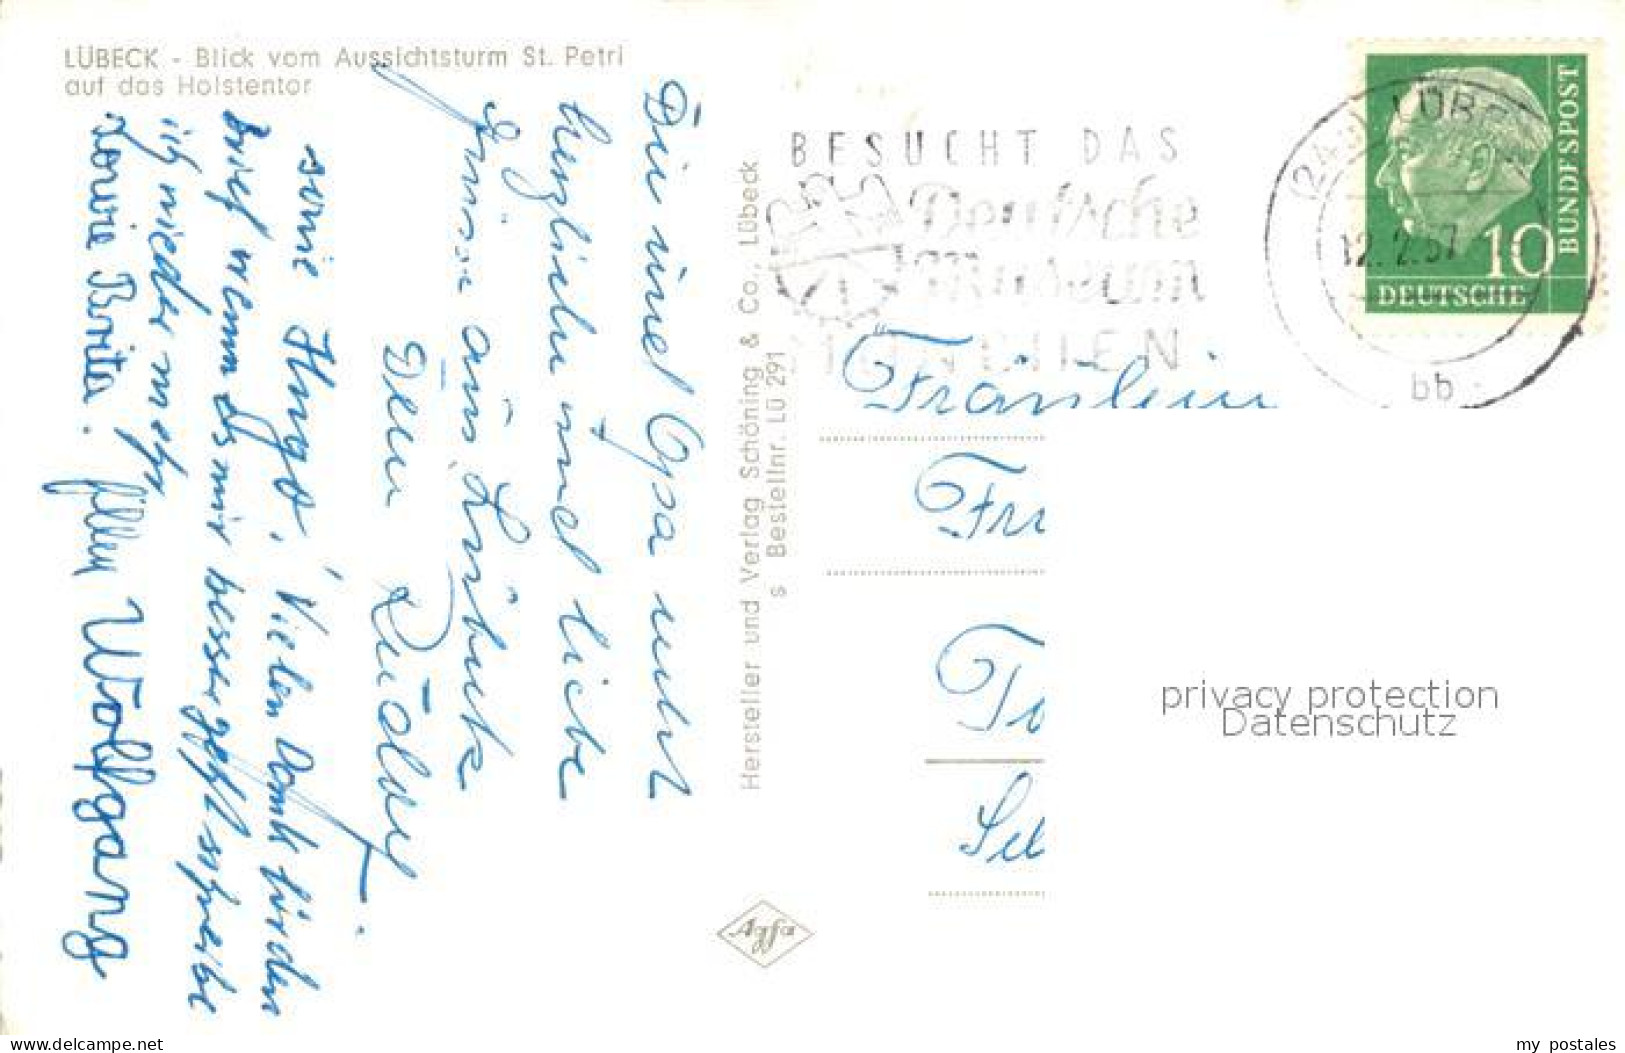 LÜBECK - Blick vom Aussichtsturm St. Petri
auf das Holstentor
Dir und Opa recht
herzliche und liebe
Grüsse aus Lübeck
Dein Rüdiger.
sowie Hugo, Vielen Dank für den
Brief wenn es mir besser geht schreibe
ich wieder mehr
sowie Brita. Wolfgang
Hersteller und Verlag Schöning & Co., Lübeck
s Bestellnr. LÜ 291
Agfa
BESUCHT DAS
Deutsche
Museum
MÜNCHEN
LÜBECK
12.2.57
bb
10
DEUTSCHE
BUNDESPOST
Fräulein
privacy protection
Datenschutz
oldthing.de
my postales